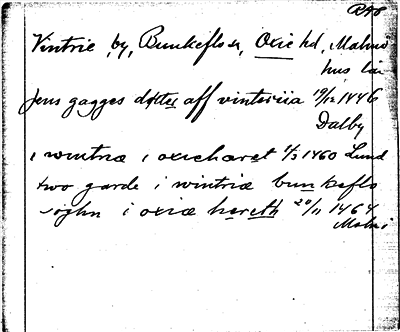 Vintrie, by, Bunkeflo sn, Oxie hd, Malmö
hus län
Jens gagges dotter aff vinteriia 19/12 1446
Dalby
i wintriæ i oxieharet 1/3 1460 Lund
two garde i wintriæ bunkeflo
soghn i oxiæ hereth 20/11 1464
Malmö